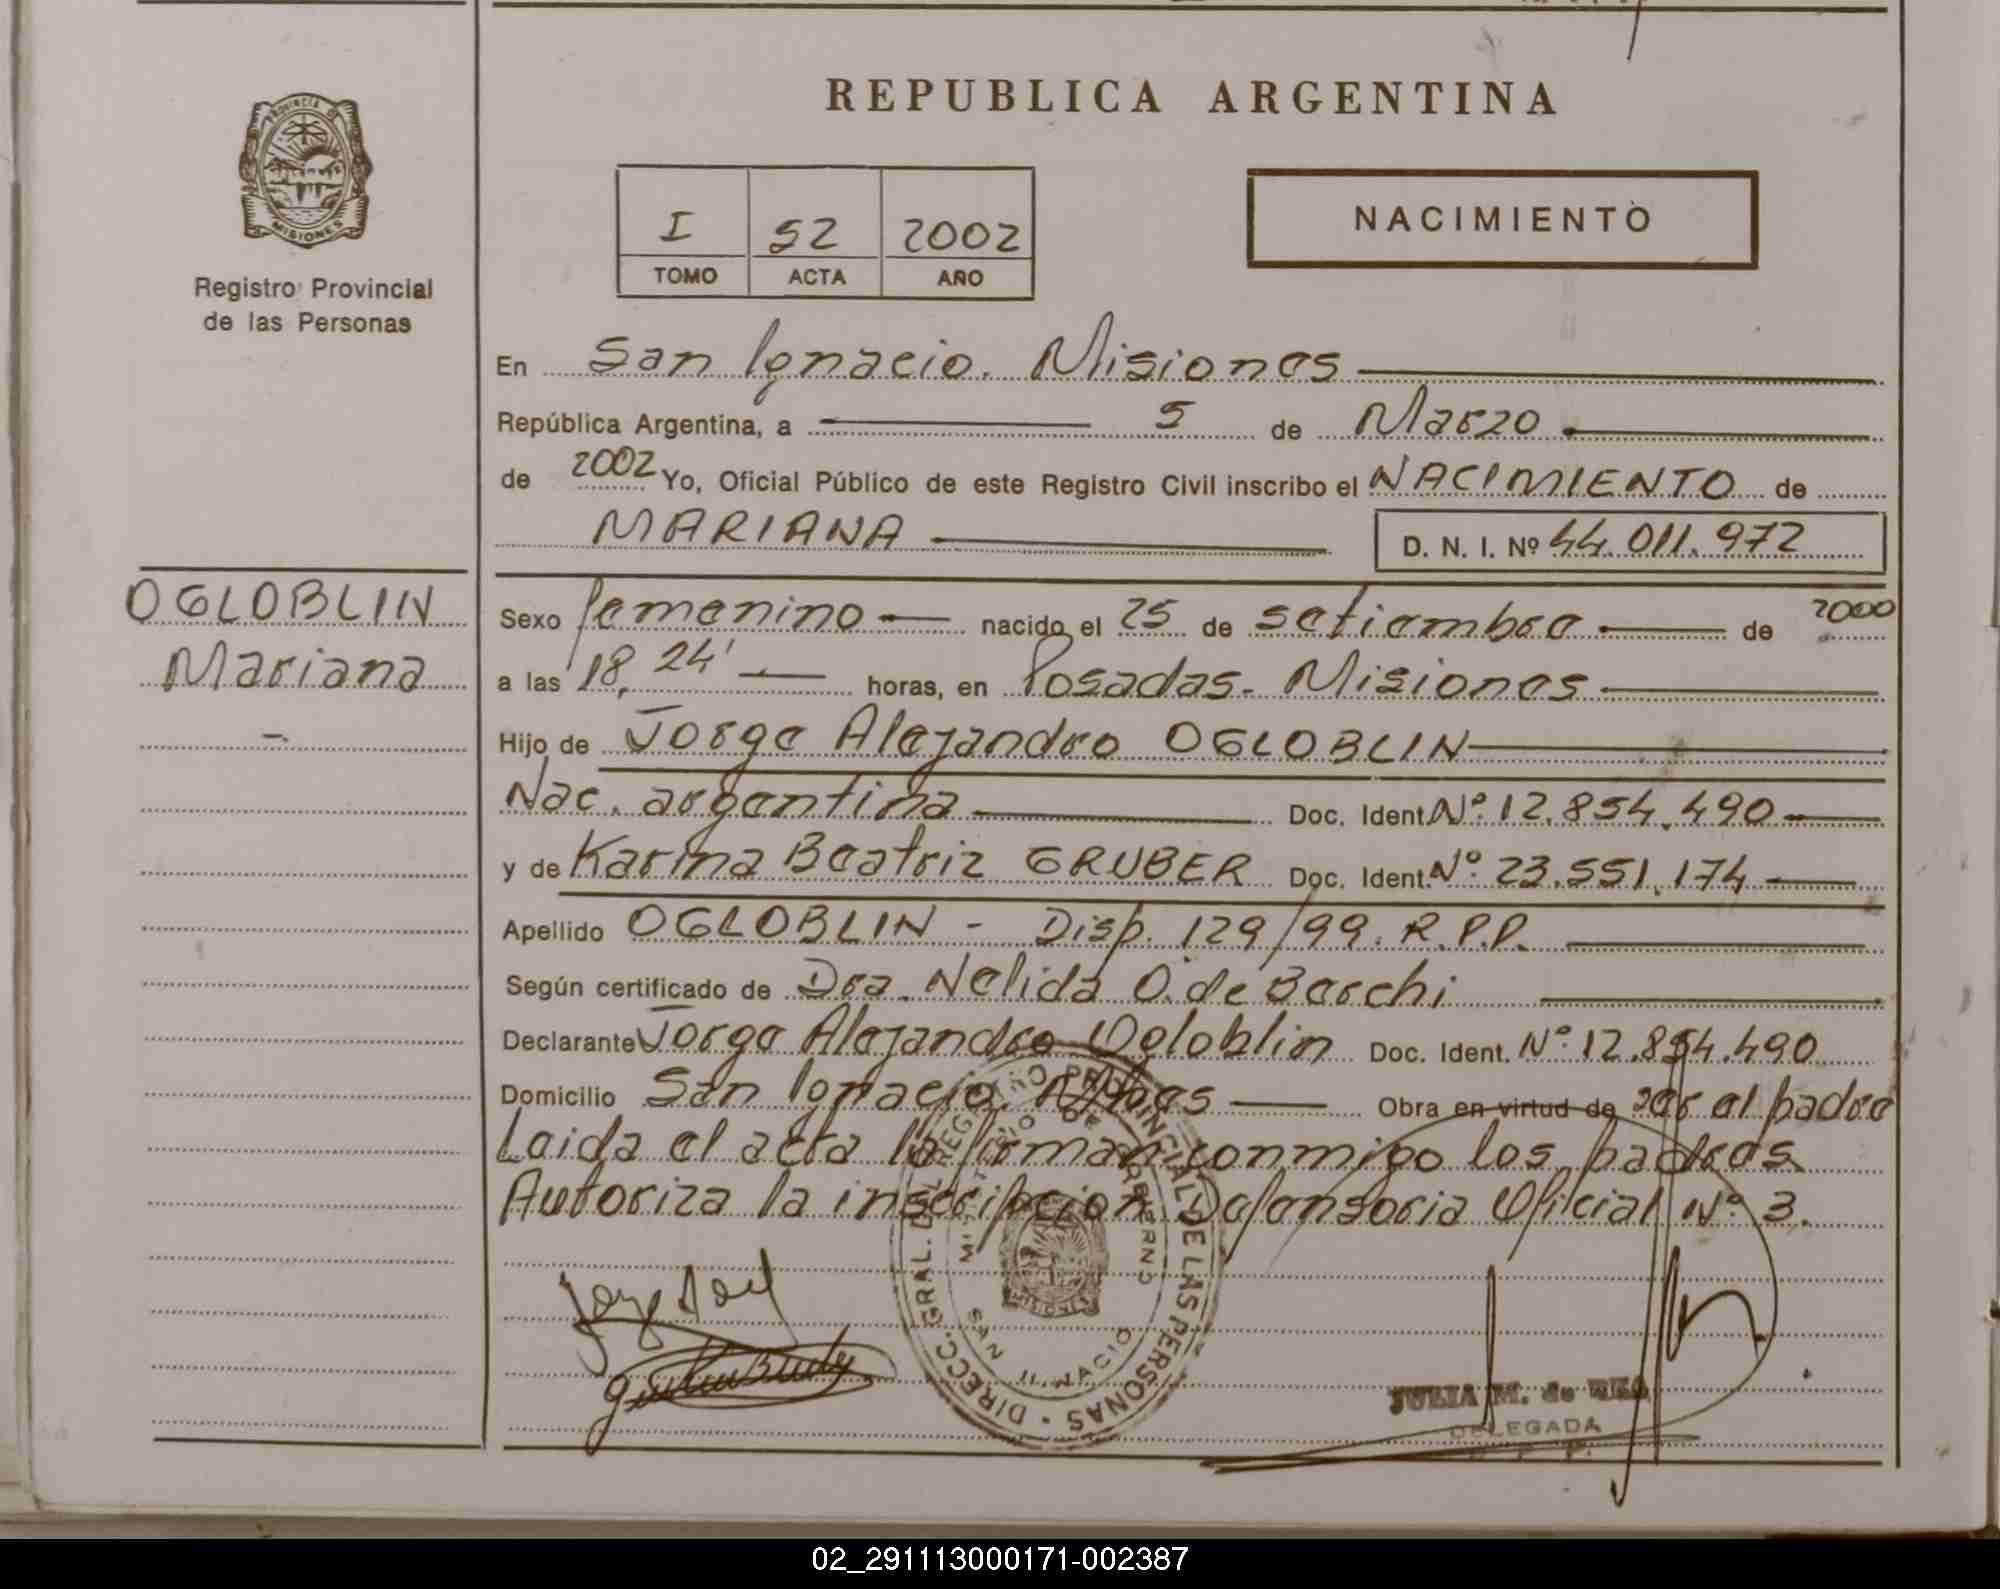 REPUBLICA ARGENTINA
PROVINCIA DE MISIONES
Registro Provincial
de las Personas
I 52 2002
TOMO ACTA AÑO
NACIMIENTO
En San Ignacio. Misiones
República Argentina, a 5 de Marzo
de 2002 Yo, Oficial Público de este Registro Civil inscribo el NACIMIENTO de
MARIANA D. N. I. Nº 44.011.972
OGLOBLIN
Mariana
Sexo femenino nacido el 25 de setiembre de 2000
a las 18,24' horas, en Posadas. Misiones
Hijo de Jorge Alejandro OGLOBLIN
Nac. argentina Doc. Ident. Nº 12.854.490
y de Karina Beatriz GRUBER Doc. Ident. Nº 23.551.174
Apellido OGLOBLIN - Disp. 129/99. R.P.P.
Según certificado de Dra. Nelida O. de Barchi
Declarante Jorge Alejandro Ogloblin Doc. Ident. Nº 12.854.490
Domicilio San Ignacio. Mnes Obra en virtud de ser el padre
Leida el acta la firman conmigo los padres
Autoriza la inscripcion Defensoria Oficial Nº 3.
DIRECC. GRAL. DEL REGISTRO PROVINCIAL DE LAS PERSONAS
MINISTERIO DE GOBIERNO
SAN IGNACIO
JULIA M. de
DELEGADA
02_291113000171-002387